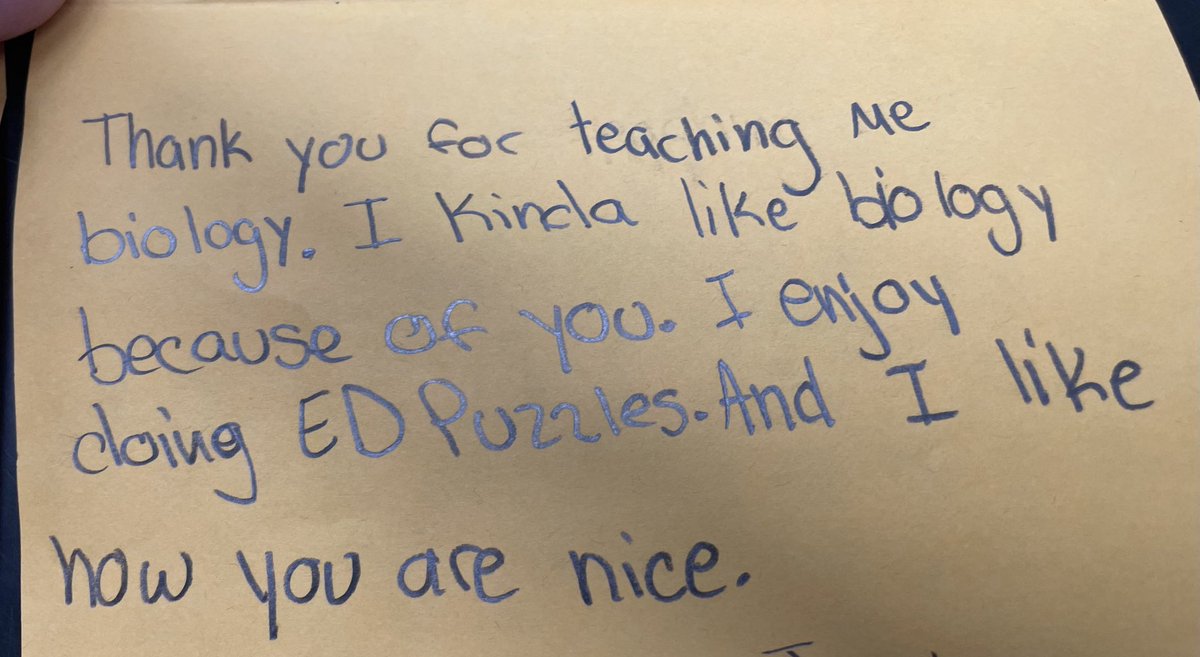 Thank you for teaching me
biology. I Kinda like biology
because of you. I enjoy
doing ED Puzzles. And I like
how you are nice.